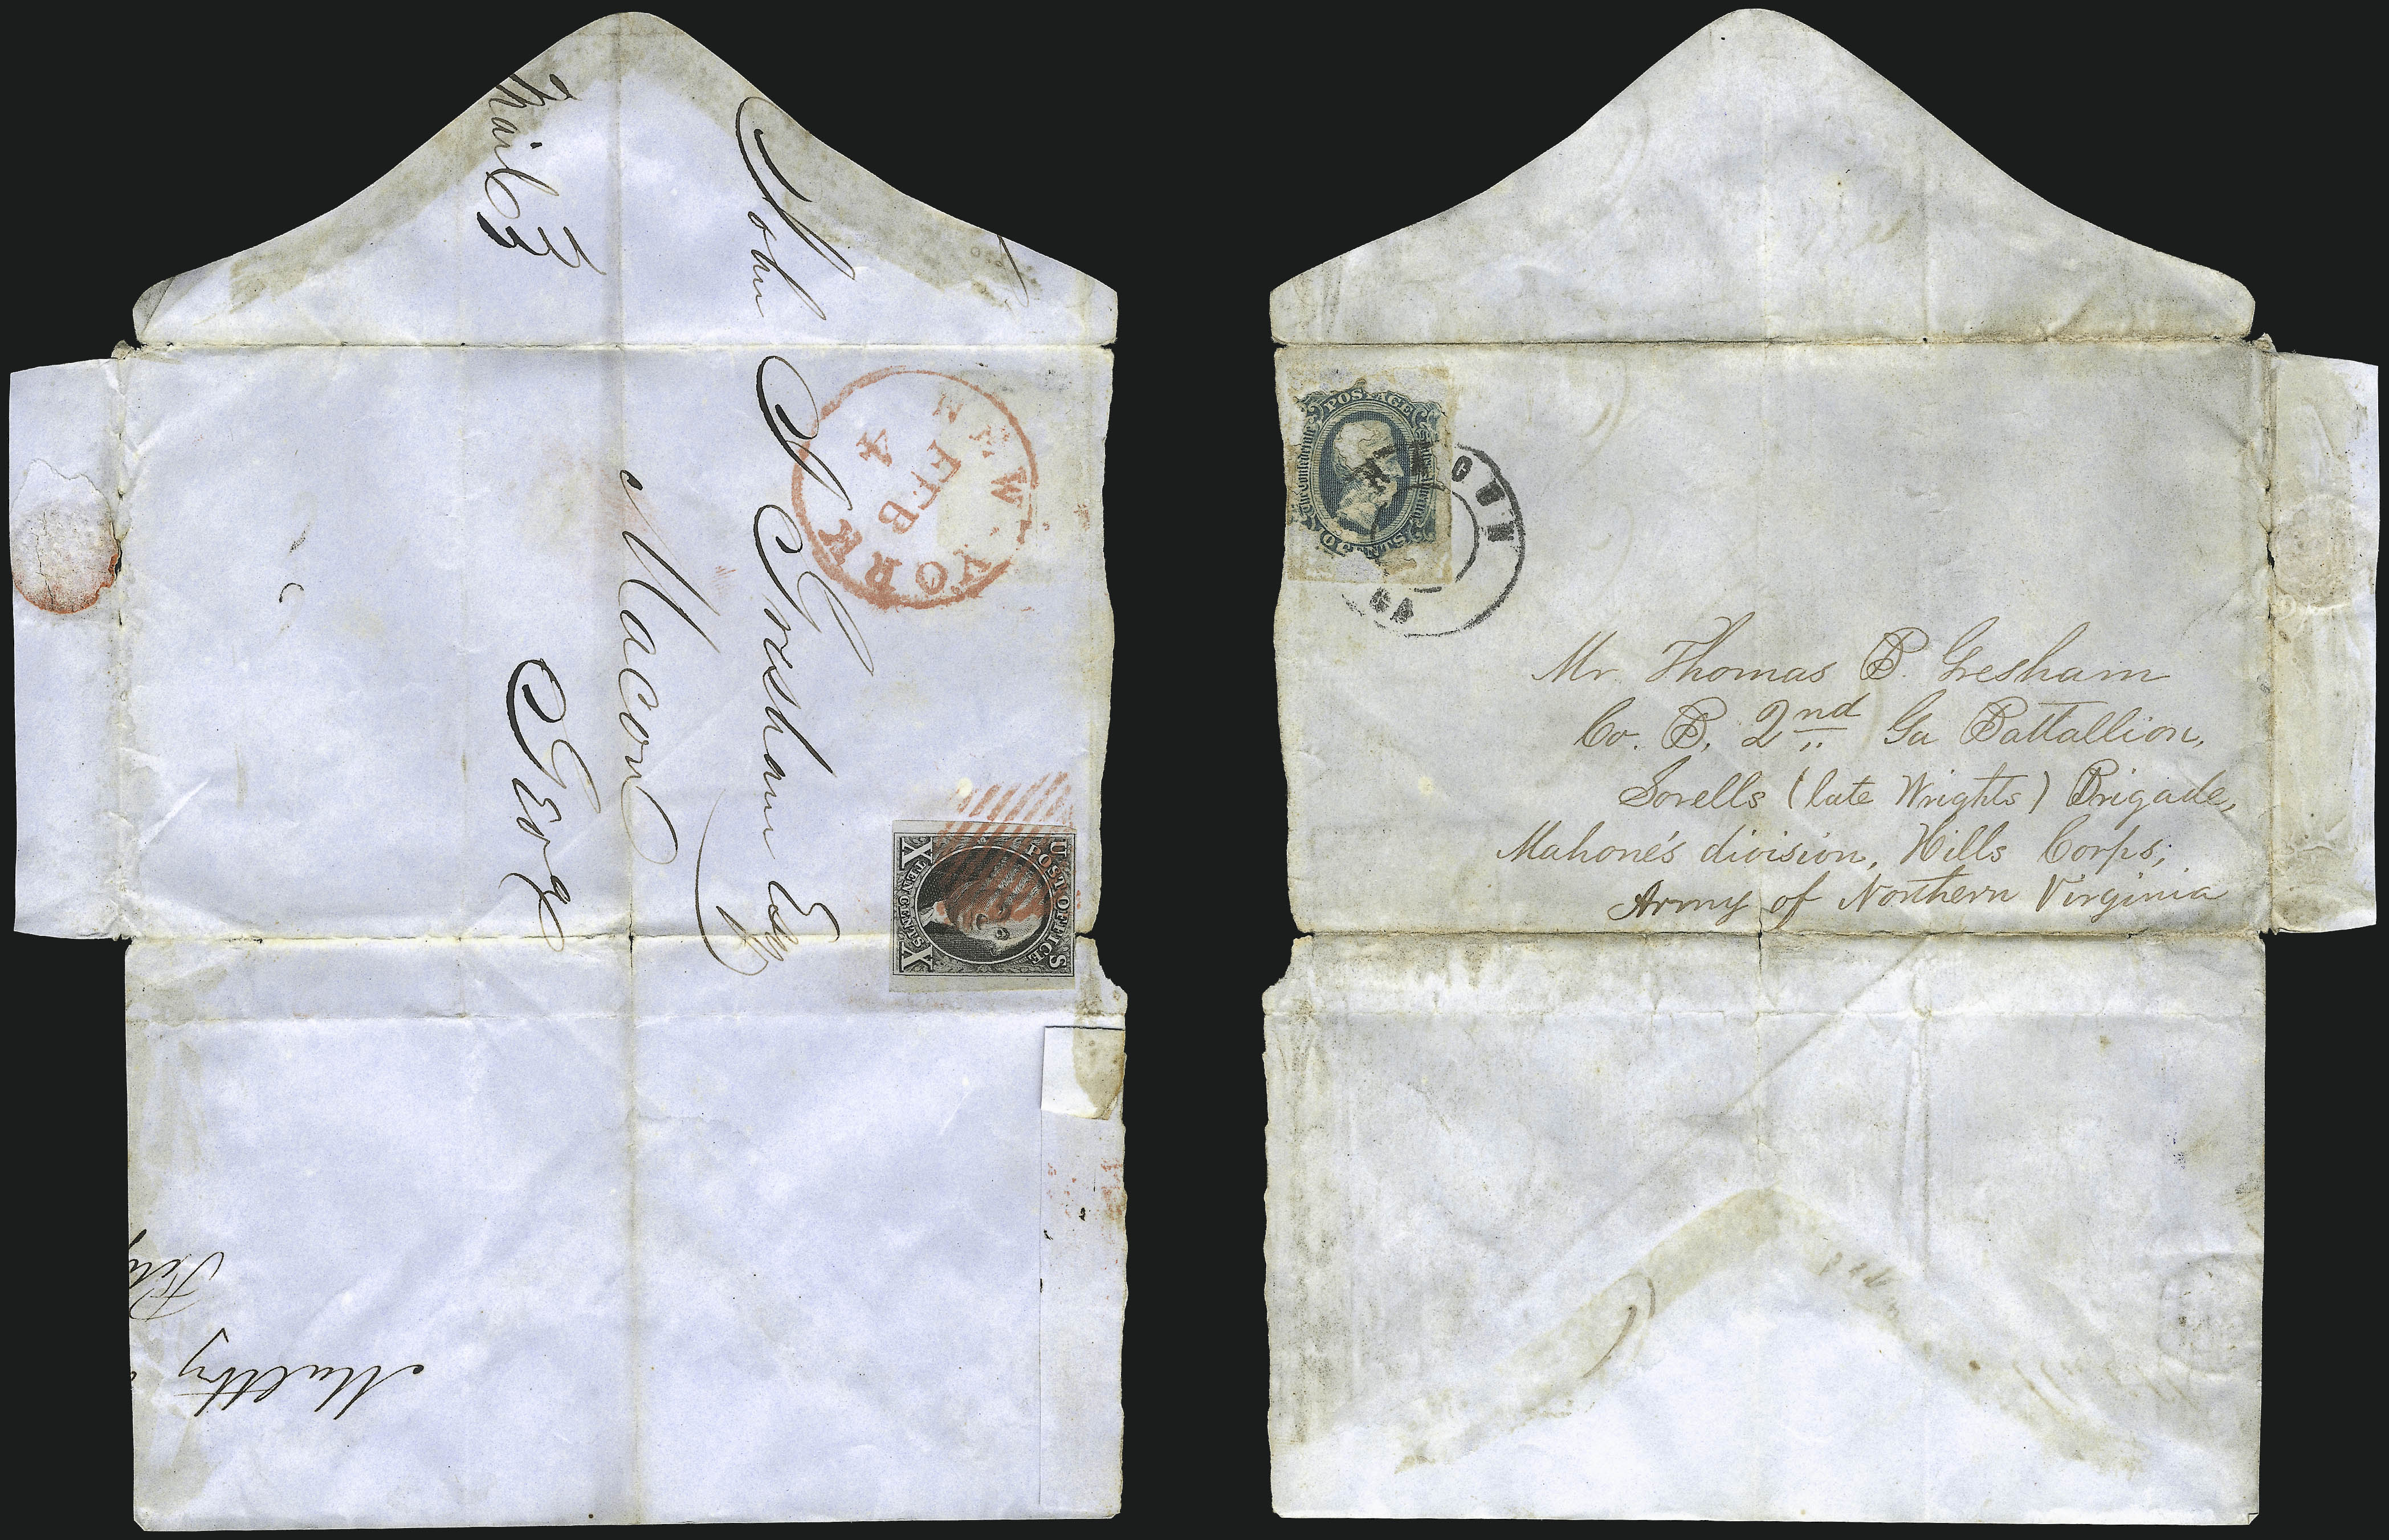 Mail 3
John J Gresham Esq
Macon
Georg
NEW-YORK
FEB
4
U S
POST OFFICE
X TEN CENTS X
Maltby
POSTAGE
The Confederate States of America
TEN CENTS
MACON
GA
Mr. Thomas B. Gresham
Co. B, 2nd Ga Battallion,
Sorells (late Wrights) Brigade,
Mahone's division, Hills Corps;
Army of Northern Virginia